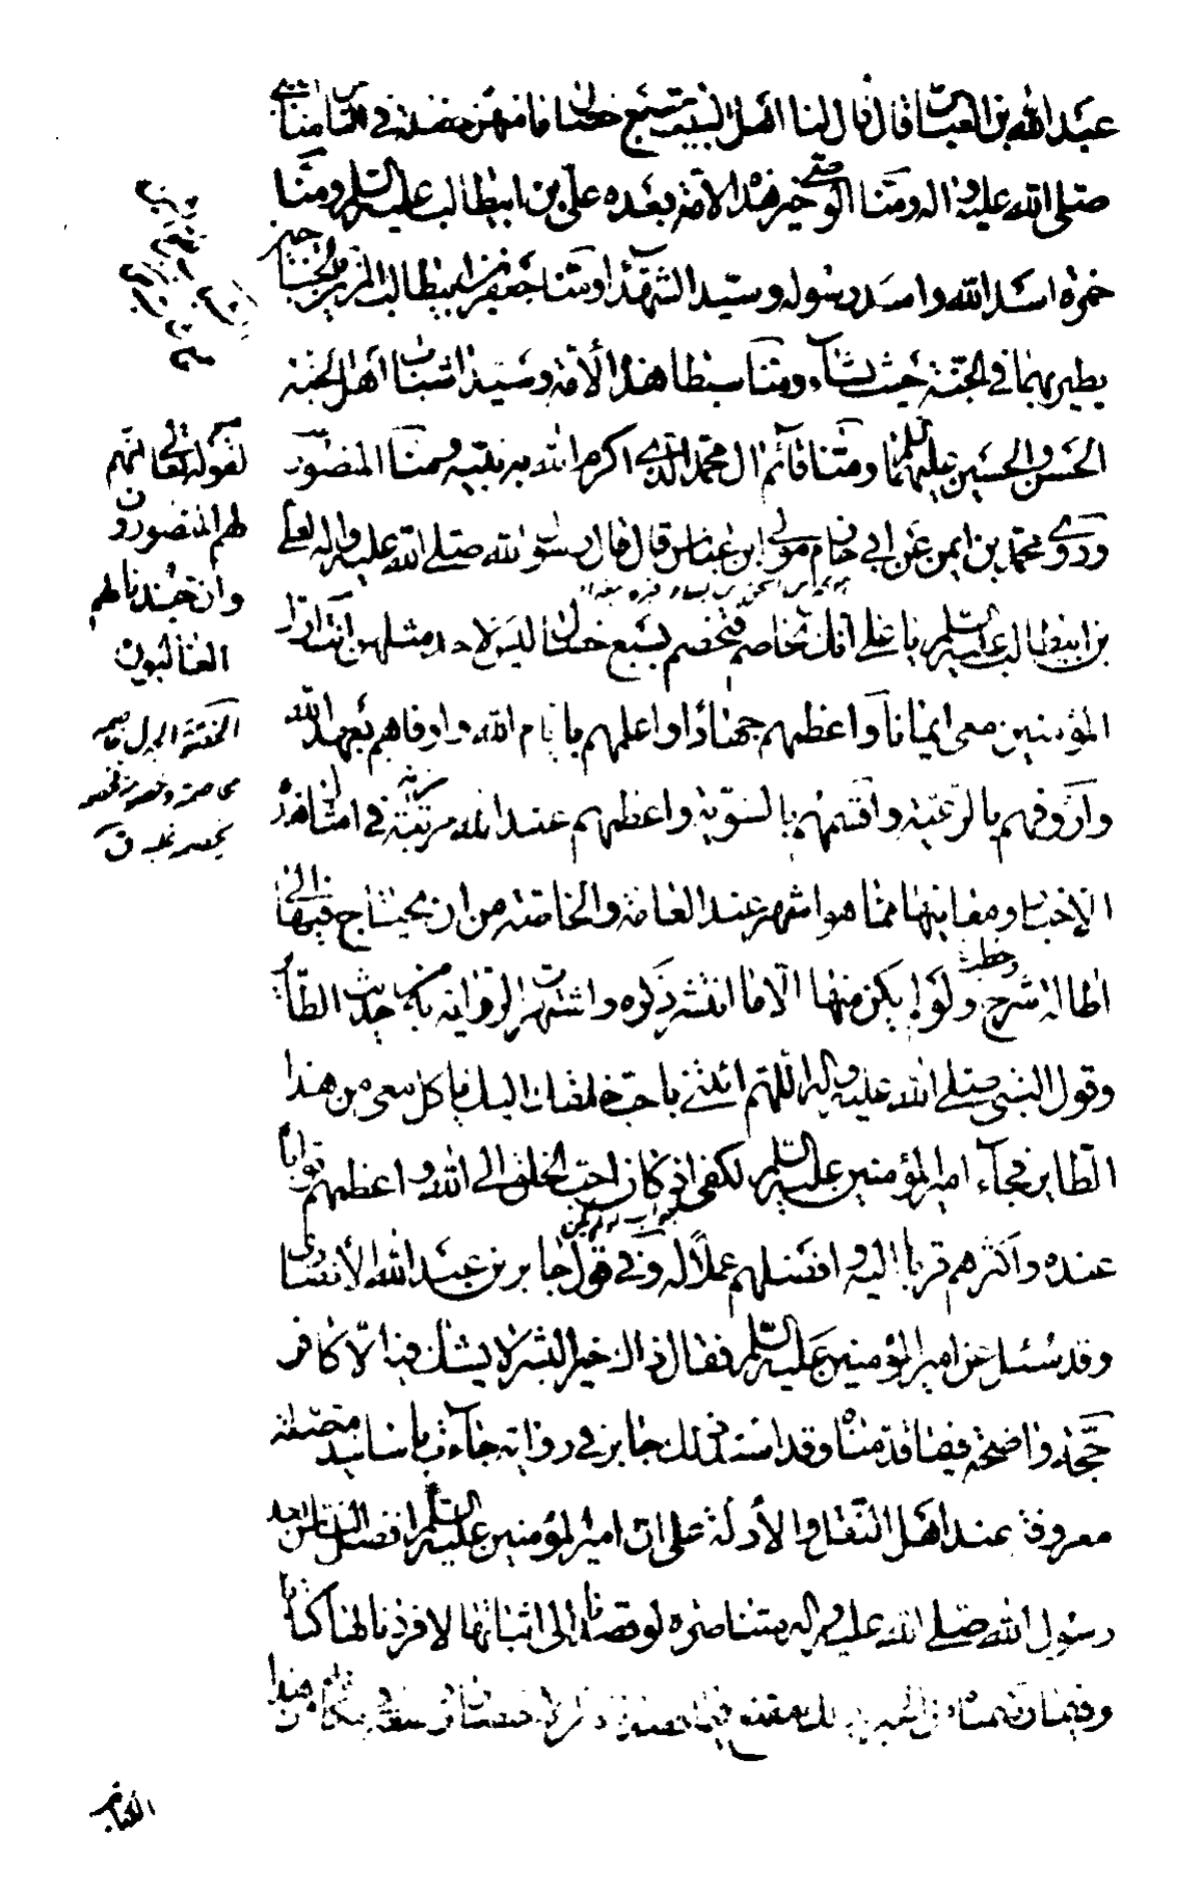 عبد الله بن العباس قال قال لنا اهل البيت سبع خصال ما منهن خصلة في الناس منا النبي
صلى الله عليه واله ومنا الوصي خير هذه الامة بعده علي بن ابيطالب عليه السلم ومنا
حمزة اسد الله واسد رسوله وسيد الشهدآء ومنا جعفر بن ابيطالب المزين بالجناحين
يطير بهما في الجنة حيث يشآء ومنا سبطا هذه الأمة وسيدا شباب اهل الجنة
الحسن والحسين عليهما السلم ومنا قآئم ال محمد الذي اكرم الله به نبيه ومنا المنصور
وروى محمد بن ايمن عن ابي حازم مولى ابن عباس قال قال رسول الله صلى الله عليه واله لعلي
بن ابيطالب عليه السلم يا علي انك تخاصم فتخصم بسبع خصال ليس لاحد مثلهن انت اول
المؤمنين معي ايمانا واعظمهم جهادا واعلمهم بايام الله واوفاهم بعهد الله
وارؤفهم بالرعية واقسمهم بالسوية واعظمهم عند الله مزية في امثال هذه
الاخبار ومعانيها مما هو اشهر عند العامة والخاصة من ان يحتاج فيها الى
اطالة شرح وخطب ولو لم يكن منها الا ما انتشر ذكره واشتهرت الرواية به من حديث الطآئر
وقول النبي صلى الله عليه واله اللهم ائتني باحب خلقك اليك ياكل معي من هذا
الطاير فجآء امير المؤمنين عليه السلم لكفى اذ كان احب الخلق الى الله واعظمهم ثوابا
جواب لو لم يكن
عنده واكثرهم قربا اليه وافضلهم عملا له وفي قول جابر بن عبد الله الأنصاري
وقد سئل عن امير المؤمنين عليه السلم فقال ذاك خير البشر لا يشك فيه الا كافر
حجة واضحة فيما قدمناه وقد اسند ذلك جابر في رواية جآءت باسانيد متصلة
معروفة عند اهل النقل والأدلة على ان امير المؤمنين عليه السلم افضل الناس بعد
رسول الله صلى الله عليه واله متناصرة لو قصدنا الى اثباتها لافردنا لها كتابا
وفيما رسمناه من الخبر بذلك مقنع فيما قصدناه من الاختصار في مكانه من هذا
لقوله تعالى انهم
لهم المنصورون
وان جندنا لهم
الغالبون
الكتاب